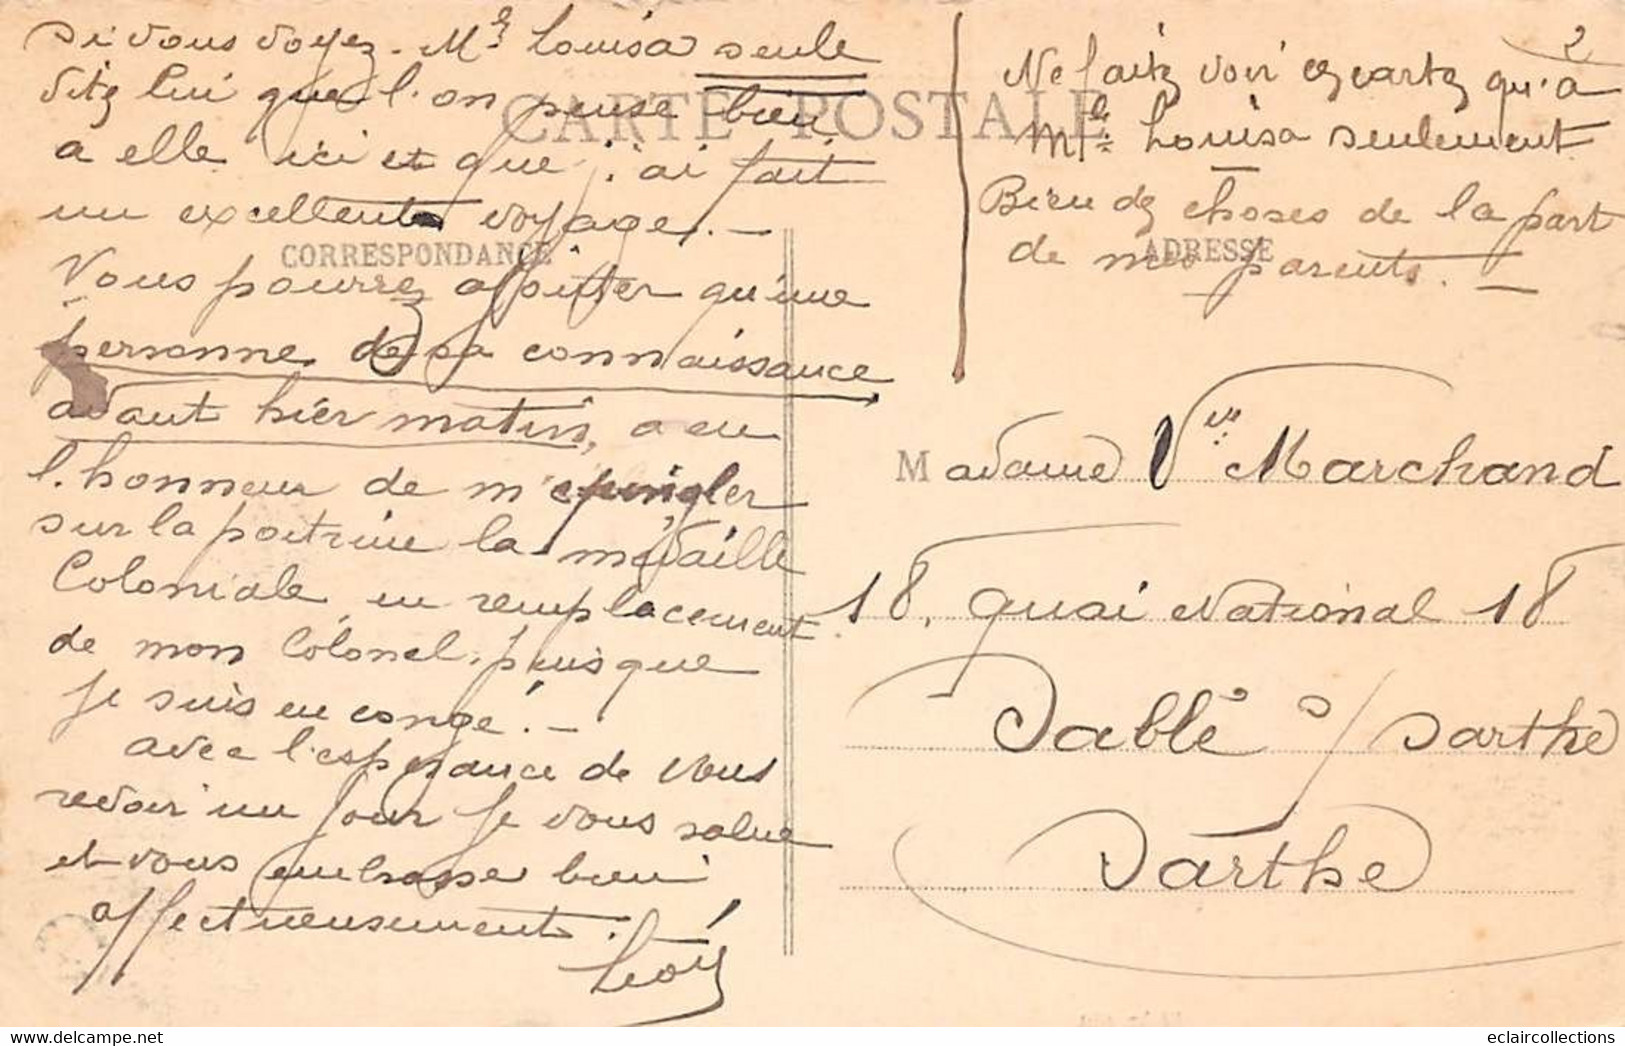 Si vous voyez. Mlle Louisa seule
ditz lui que l'on pense bien
CARTE POSTALE
a elle ici et que j'ai fait
un excellent voyage. —
CORRESPONDANCE
Vous pourrez ajouter qu'une
personne de sa connaissance
avant hier matin, a eu
l'honneur de m'épingler
sur la poitrine la médaille
Coloniale en remplacement
de mon Colonel, puisque
je suis en congé. —
avec l'espérance de vous
revoir un jour je vous salue
et vous embrasse bien
affectueusement.
Léon
2
Ne faitz voir cz cartz qu'a
Mlle Louisa seulement
Bien dz choses de la part
ADRESSE
de mes parents. —
Madame Vve Marchand
18, quai National 18
Sablé s/ Sarthe
Sarthe
www.delcampe.net
eclaircollections